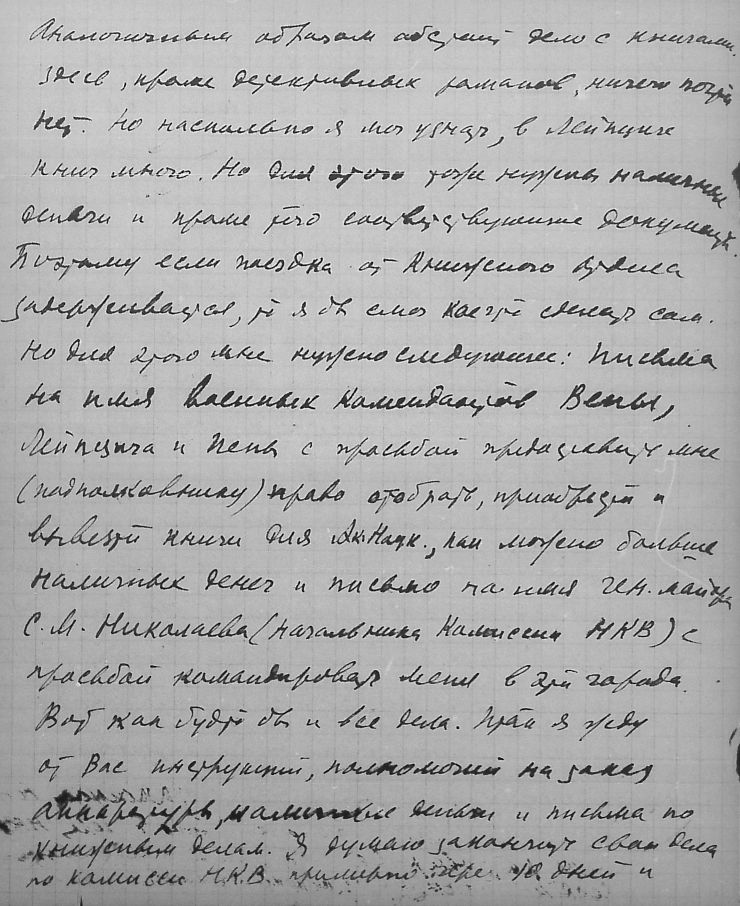 Аналогичным образом обстоит дело с книгами.
Здесь, кроме детективных романов, ничего почти
нет. Но насколько я мог узнать, в Лейпциге
книг много. Но для этого тоже нужны наличные
деньги и кроме того соответствующие документы.
Поэтому если поездка от Книжного отдела
задерживается, то я бы смог кое что сделать сам.
Но для этого мне нужно следующее: Письма
на имя Военных Комендантов Вены,
Лейпцига и Иены с просьбой предоставить мне
(подполковнику) право отобрать, приобрести и
вывезти книги для Ак. Наук., как можно больше
наличных денег и письмо на имя ген. майора
С. М. Николаева (начальника Комиссии НКВ) с
просьбой командировать меня в эти города.
Вот как будто бы и все дела. Итак я жду
от Вас инструкций, полномочий на заказ
аппаратуры, наличные деньги и письма по
книжным делам. Я думаю закончить свои дела
по комиссии НКВ примерно через 10 дней и